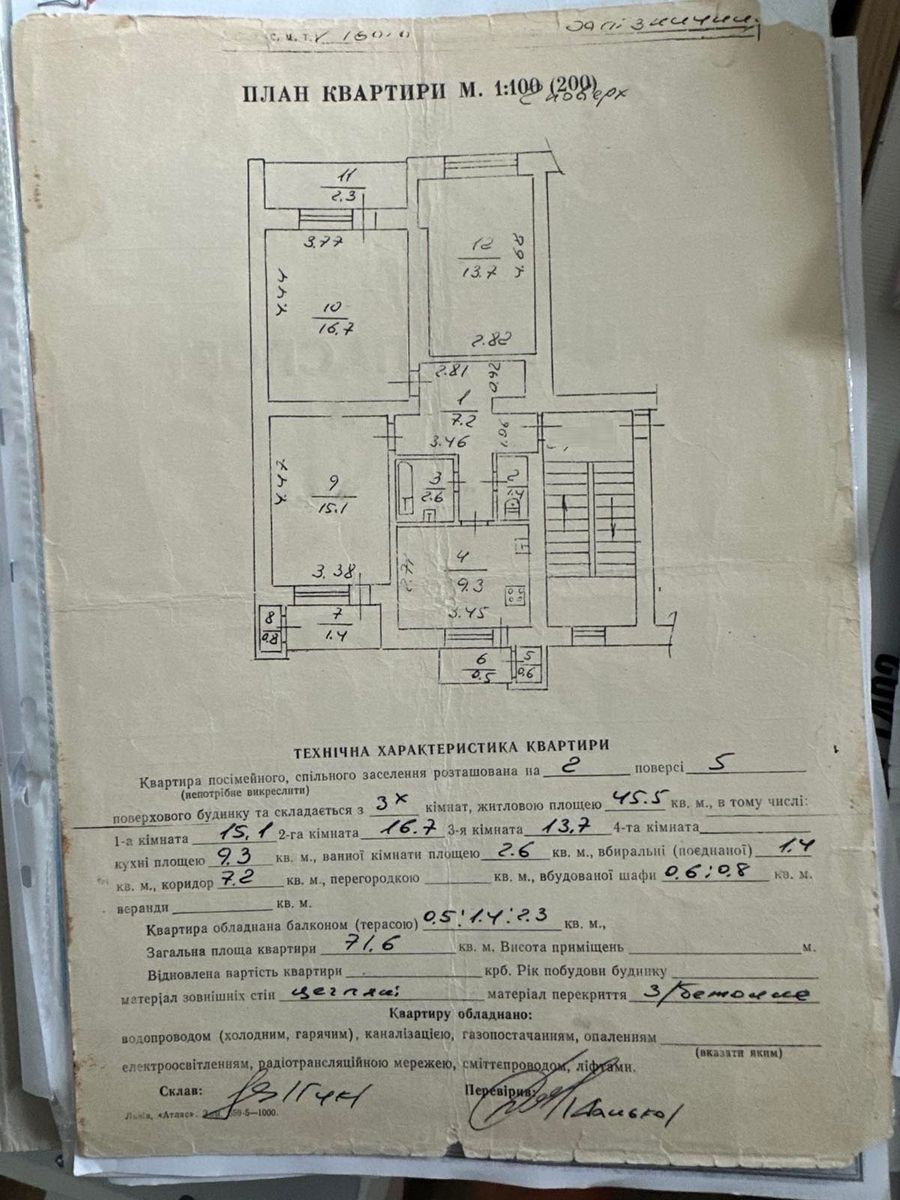 С. М. Т.
ЗАЛІЗНИЧНИЙ
ПЛАН КВАРТИРИ М. 1:100 (200)
2 поверх
11
2.3
3.77
4.44
10
16.7
12
13.7
4.89
2.82
2.81
0.92
1
7.2
3.46
1.06
4.47
9
15.1
3.38
3
2.6
2
1.4
4
9.3
2.71
3.45
8
0.8
7
1.4
6
0.5
5
0.6
ТЕХНІЧНА ХАРАКТЕРИСТИКА КВАРТИРИ
Квартира посімейного, спільного заселення розташована на 2 поверсі 5
(непотрібне викреслити)
поверхового будинку та складається з 3х кімнат, житловою площею 45.5 кв. м., в тому числі:
1-а кімната 15,1 2-га кімната 16.7 3-я кімната 13,7 4-та кімната
кухні площею 9.3 кв. м., ванної кімнати площею 2.6 кв. м., вбиральні (поєднаної) 1.4
кв. м., коридор 7.2 кв. м., перегородкою кв. м., вбудованої шафи 0,6; 0,8 кв. м.
веранди кв. м.
Квартира обладнана балконом (терасою) 0,5; 1.4; 2.3 кв. м.,
Загальна площа квартири 71,6 кв. м. Висота приміщень м.
Відновлена вартість квартири крб. Рік побудови будинку
матеріал зовнішніх стін цегляні матеріал перекриття З/бетонне
Квартиру обладнано:
водопроводом (холодним, гарячим), каналізацією, газопостачанням, опаленням
(вказати яким)
електроосвітленням, радіотрансляційною мережею, сміттєпроводом, ліфтами.
Склав: Перевірив:
Львів, «Атлас». 5—1000.